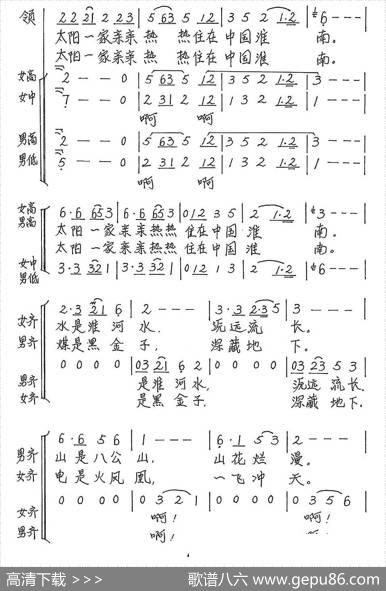 领 2 2 2 2 1 2 2 3 | 5 6 3 5 1 2 | 3 5 2 1·2 | 6 - - -
太阳一家亲亲热 热住在中国淮 南。
太阳一家亲亲热 热住在中国淮 南。
女高 2 - - 0 | 5 6 3 5 1 2 | 3 5 2 1·2 | 3 - - -
女中 7 - - 0 | 2 3 1 2 1 2 | 1 3 2 1·2 | 1 - - -
啊 啊
男高 2 - - 0 | 5 6 3 5 1 2 | 3 5 2 1·2 | 3 - - -
男低 5 - - 0 | 2 3 1 2 1 2 | 1 3 2 1·2 | 1 - - -
啊 啊
女高 男高 6·6 6 5 3 | 6·6 6 5 3 | 0 1 2 3 5 | 2 1·2 | 3 - - -
太阳一家亲亲热热住在中国淮 南。
太阳一家亲亲热热住在中国淮 南。
女中 男低 3·3 3 2 1 | 3·3 3 2 1 | 0 1 2 1 3 | 2 1·2 | 6 - - -
女齐 2·3 2 1 6 | 2 - - - | 3·3 2·3 5 | 3 - - -
水是淮河水, 流远流 长。
男齐 煤是黑金子, 深藏地 下。
男齐 0 0 0 0 | 0 3 2 1 6 2 | 0 0 0 0 | 0 3 2 3 5 3
女齐 是淮河水, 流远流长
是黑金子, 深藏地下
男齐 6·6 5 6 | 1 - - - | 6·1 5 3 | 2 - - -
山是八公山, 山花烂 漫。
女齐 电是火凤凰, 一飞冲 天。
0 0 0 0 | 0 3 2 1 | 0 0 0 0 | 0 3 5 6
女齐 啊! 啊!
男齐 啊!
高清下载 >>> 歌谱八六 www.gepu86.com